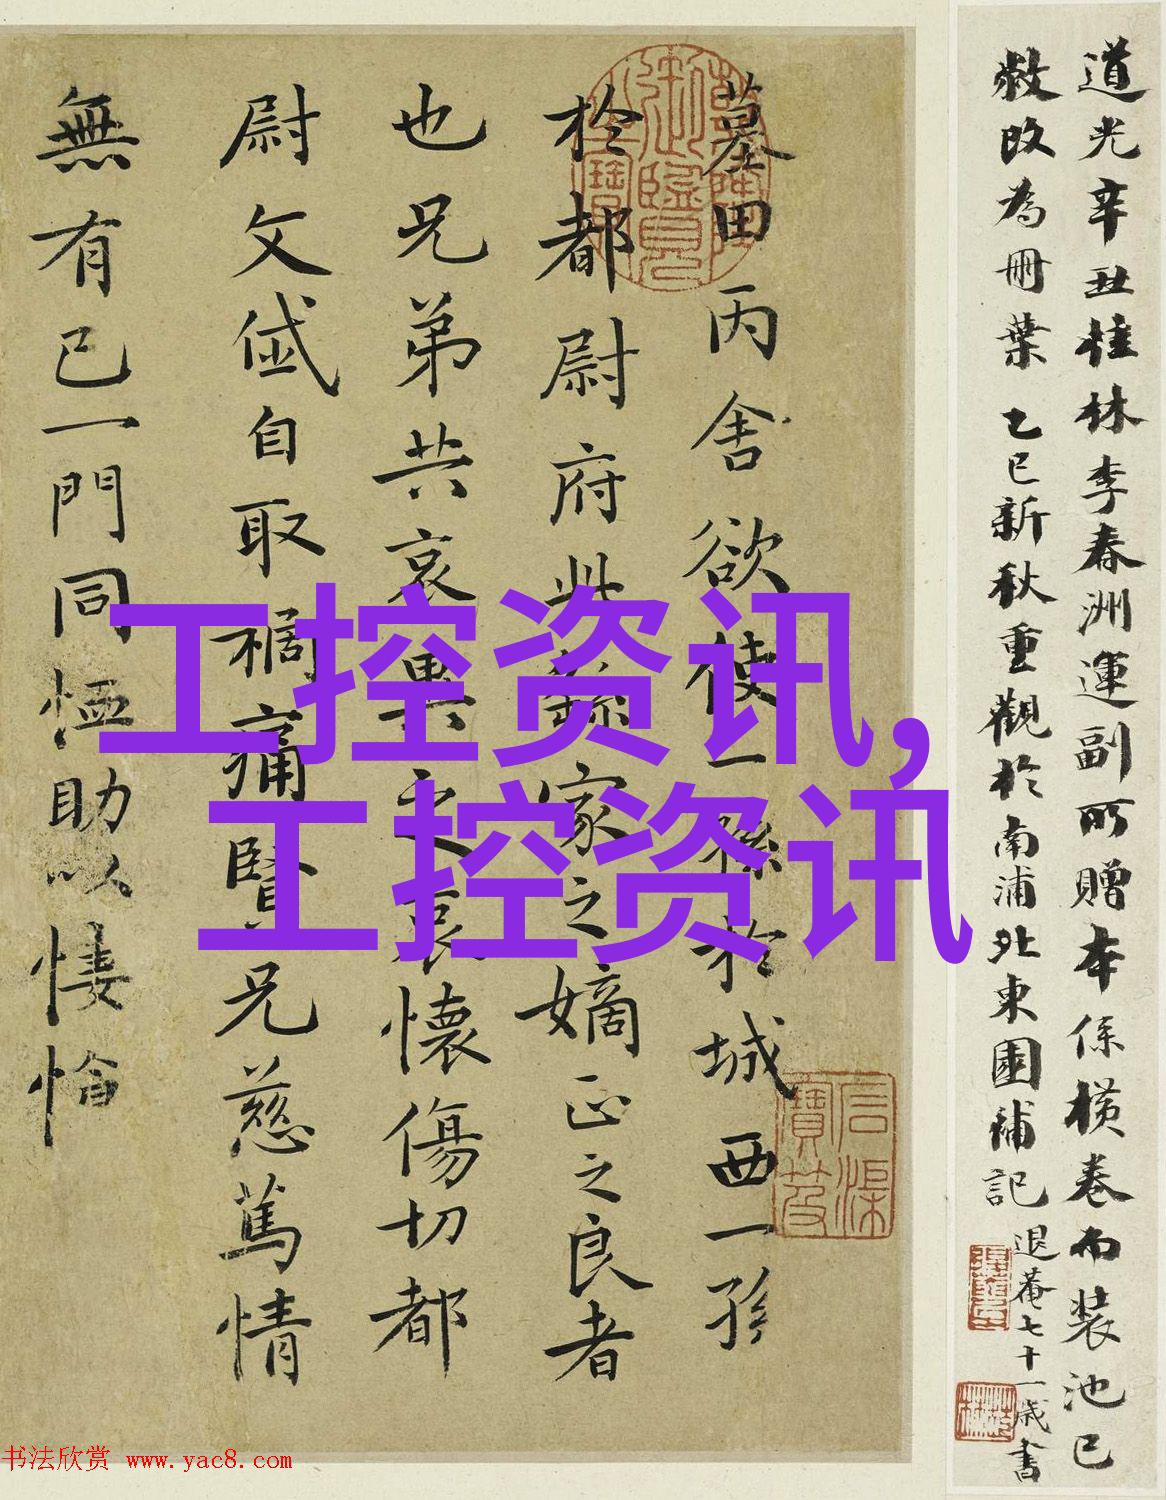 道光辛丑桂林李春洲運副所贈本係橫卷而裝池已
敝改為冊葉 乙巳新秋重觀於南浦北東園補記
退菴七十一歲書
墓田丙舍欲使一孫於城西一孫
於都尉府此繇家之嫡正之良者
也兄弟共哀異之哀懷傷切都
尉文岱自取禍痛賢兄慈篤情
無有已一門同恤助以悽愴
御覽
寶
工控资讯,
工控资讯
书法欣赏 www.yac8.com